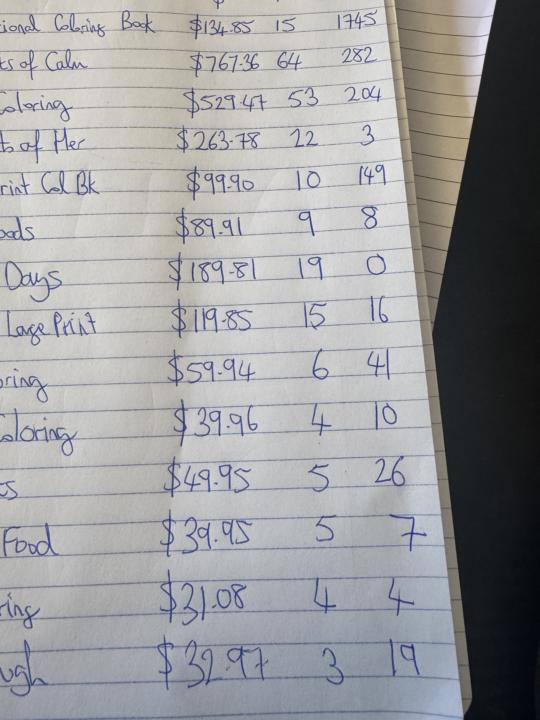 ional Coloring Book $134.85 15 1745
ts of Calm $767.36 64 282
Coloring $529.47 53 204
ts of Her $263.78 22 3
rint Col Bk $99.90 10 149
oods $89.91 9 8
Days $189.81 19 0
Large Print $119.85 15 16
oring $59.94 6 41
Coloring $39.96 4 10
ts $49.95 5 26
Food $39.95 5 7
ring $31.08 4 4
ugh $32.97 3 19